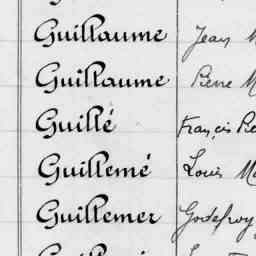 Guillaume Jean
Guillaume Pierre
Guillé François
Guillemé Louis
Guillemer Godefroy